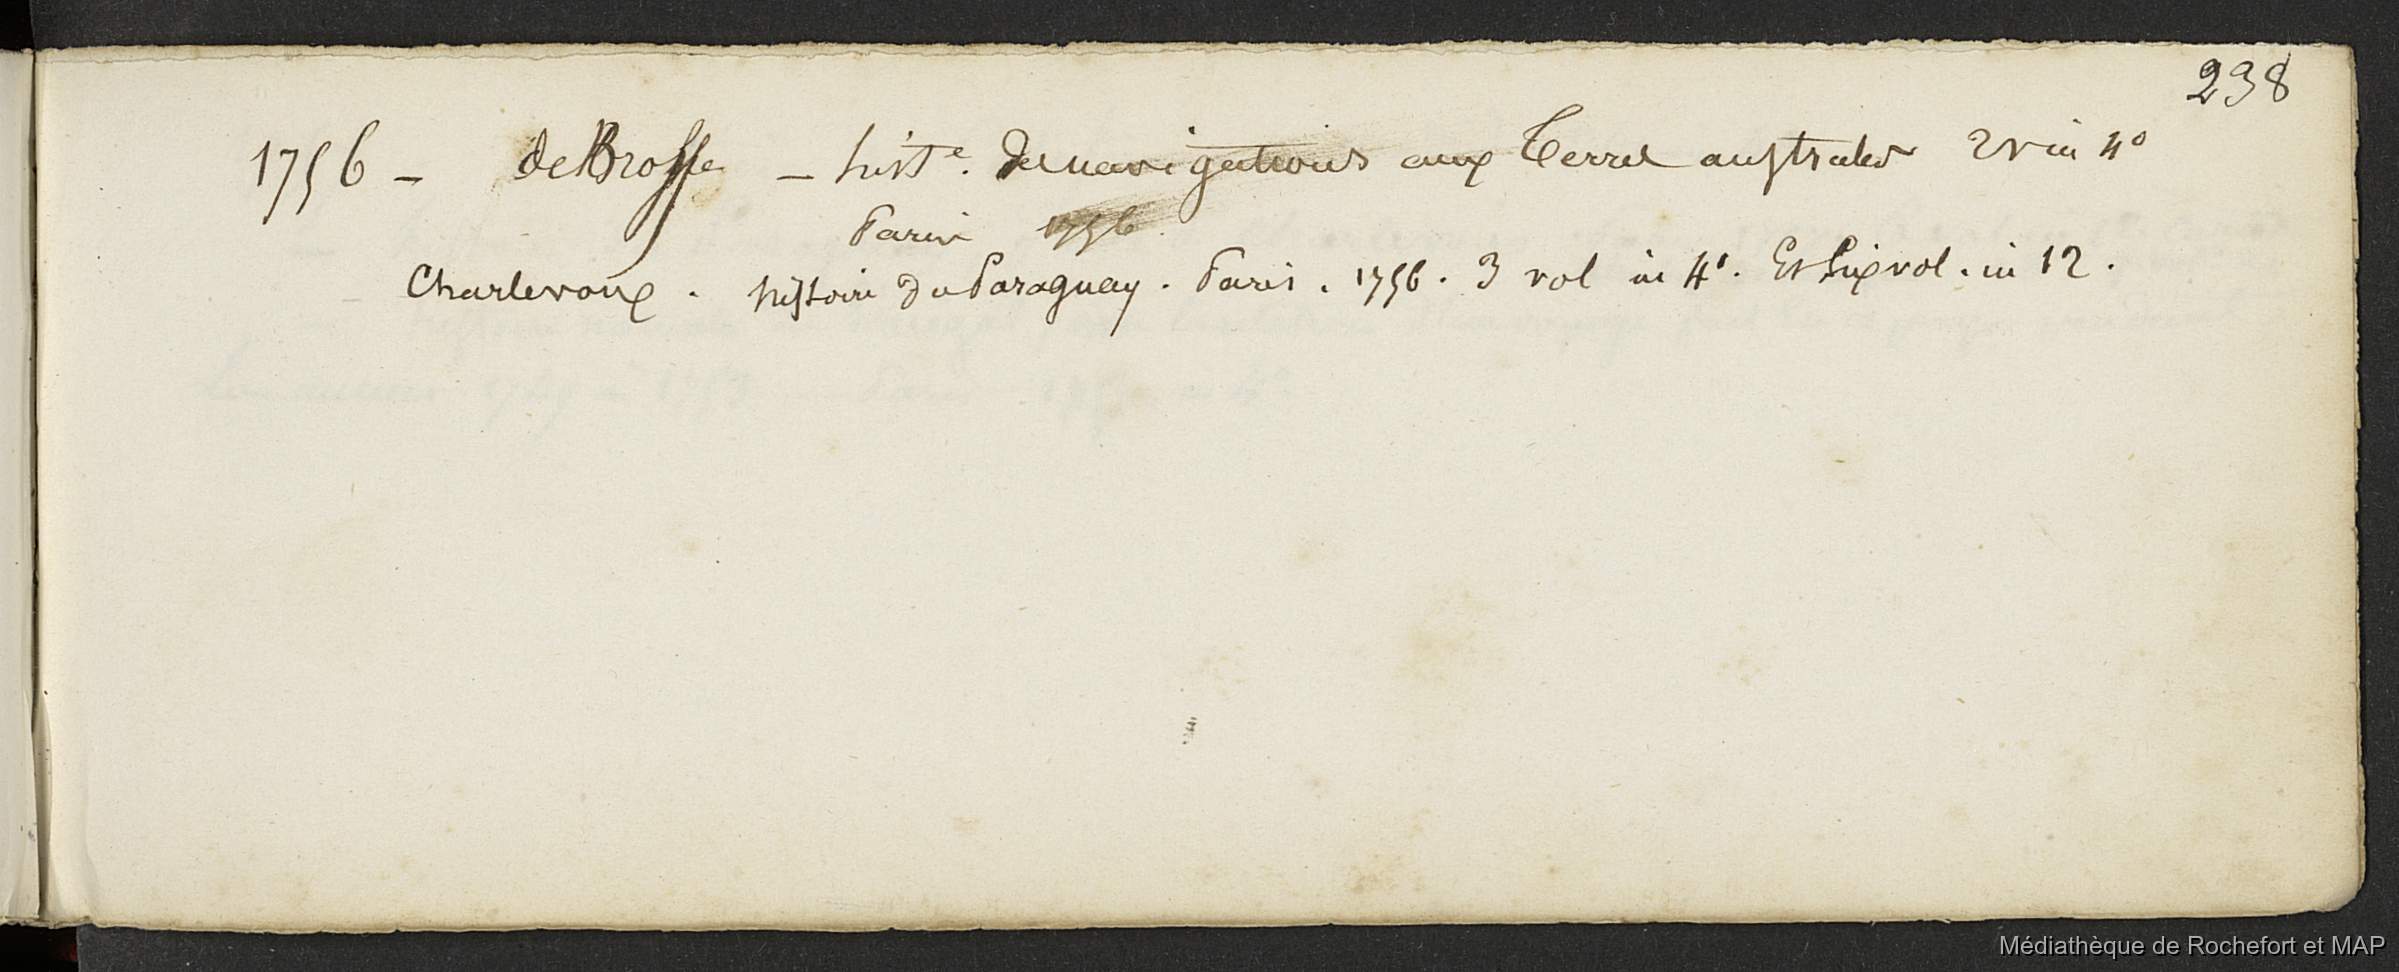 238
1756 - de Brosse - hist.e des navigations aux Terres australes 2 v in 4°
Paris 1756
Charlevoux . histoire du Paraguay . Paris . 1756 . 3 vol in 4°. Et six vol . in 12 .
Médiathèque de Rochefort et MAP